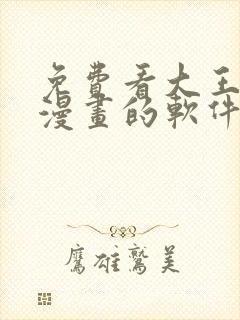 免費看大王
漫畫的軟件
鷹雄鷲美